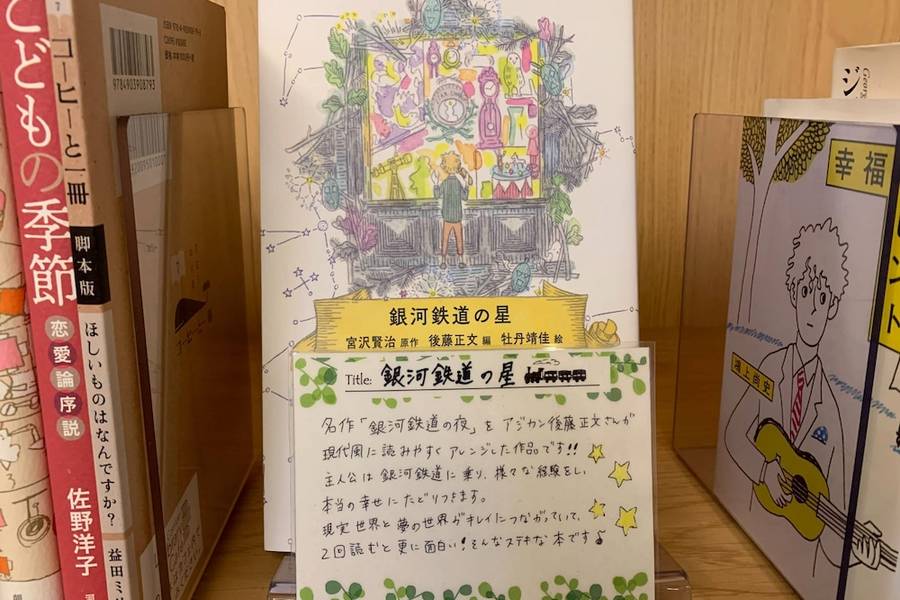 こどもの季節
恋愛論序説
佐野洋子
コーヒーと一冊
脚本版
ほしいものはなんですか?
益田ミリ
9784903908793
銀河鉄道の星
宮沢賢治 原作 後藤正文 編 牡丹靖佳 絵
Title: 銀河鉄道の星
名作「銀河鉄道の夜」を アジカン後藤正文さんが
現代風に読みやすく アレンジした作品です!!
主人公は銀河鉄道に乗り、様々な経験をし、
本当の幸せにたどりつきます。
現実世界と夢の世界がキレイにつながっていて、
2回読むと更に面白い!そんなステキな本です♪
幸福
鴻上尚史
ヒント
Georg
ジ